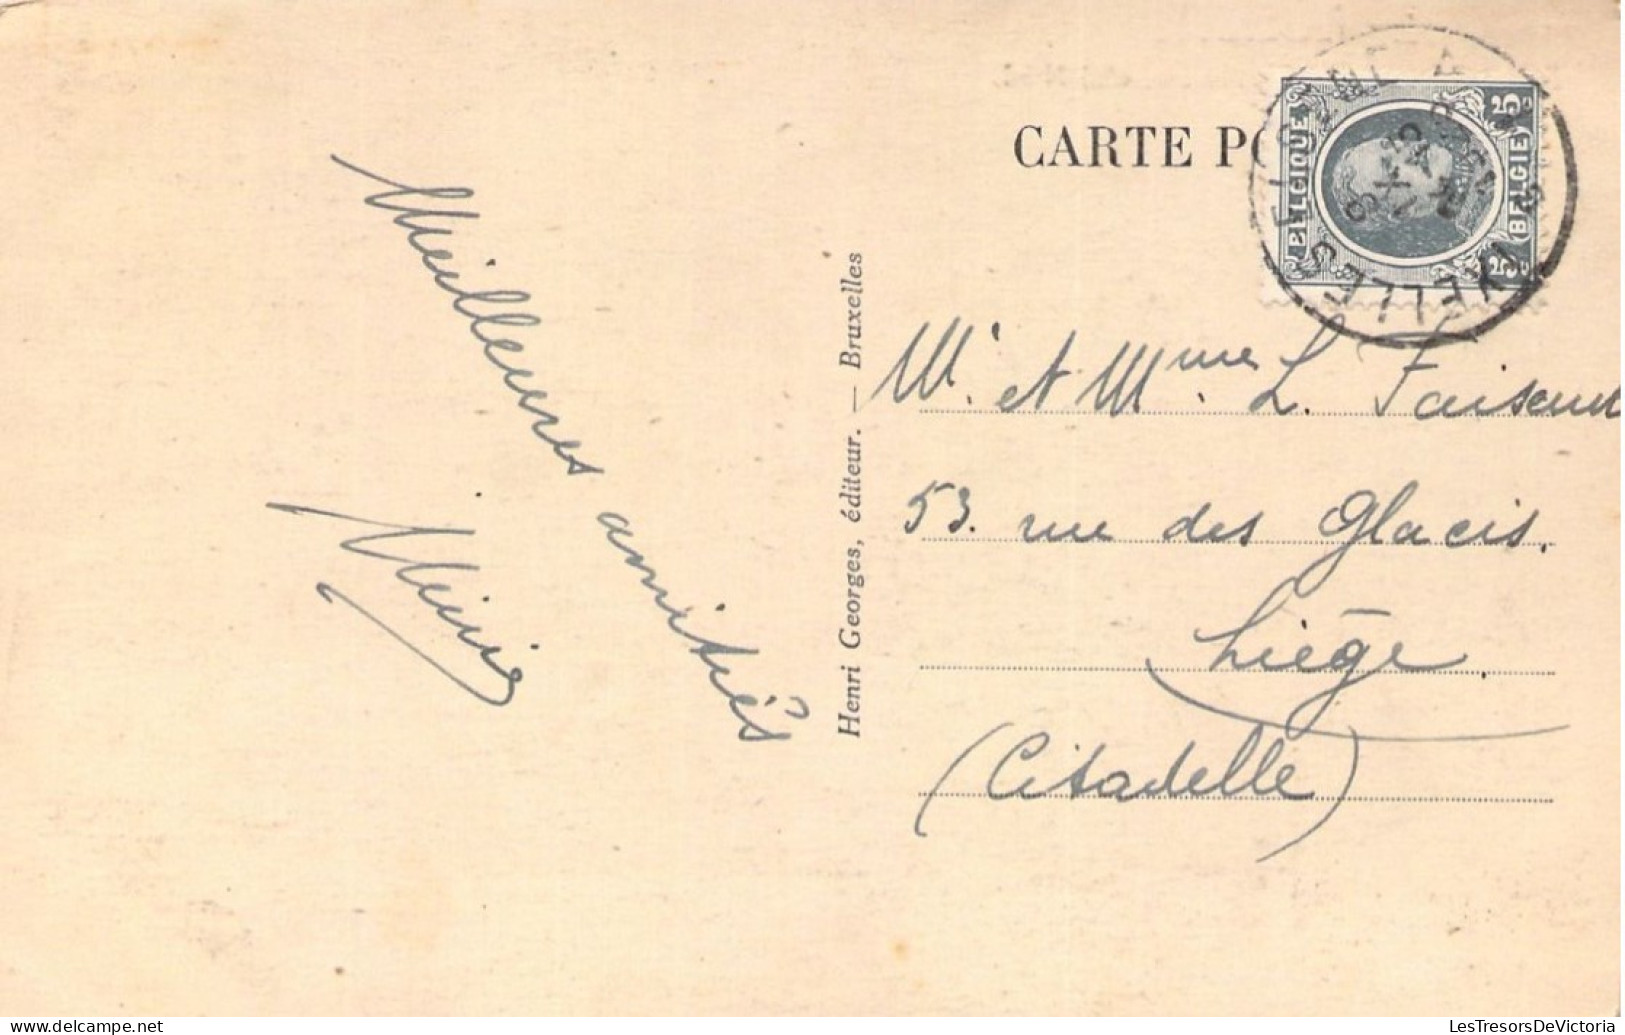 CARTE PO
BELGIQUE
BELGIE
5c
5c
IXELLES
ELSENE
Meilleures amitiés
Henri Georges, éditeur. — Bruxelles
Mr. et Mme L. Faisant
53. rue des Glacis.
Liége
(Citadelle)
LesTresorsDeVictoria